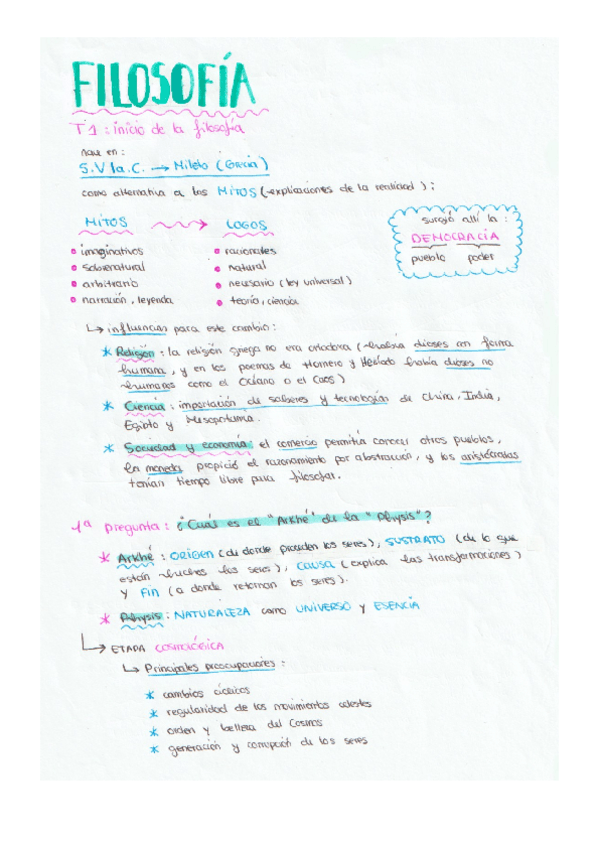 FILOSOFÍA
T1: inicio de la filosofía
nace en:
S.VI a.C. → Mileto (Grecia)
como alternativa a los MITOS (-explicaciones de la realidad):
MITOS → LOGOS
surgió allí la:
DEMOCRACIA
pueblo poder
• imaginativos • racionales
• sobrenatural • natural
• arbitrario • necesario (ley universal)
• narración, leyenda • teoría, ciencia
↳ influencias para este cambio:
* Religión: la religión griega no era creadora (había dioses con forma
humana, y en los poemas de Homero y Hesíodo había dioses no
humanos como el Océano o el Caos)
* Ciencia: importación de saberes y tecnologías de China, India,
Egipto y Mesopotamia.
* Sociedad y economía: el comercio permitía conocer otros pueblos,
la moneda propició el razonamiento por abstracción, y los aristócratas
tenían tiempo libre para filosofar.
1ª pregunta: ¿Cuál es el "Arkhé" de la "Physis"?
* Arkhé: ORIGEN (de donde proceden los seres), SUSTRATO (de lo que
están hechos los seres), CAUSA (explica las transformaciones)
y FIN (a donde retornan los seres).
* Physis: NATURALEZA como UNIVERSO y ESENCIA
↳ ETAPA COSMOLÓGICA
↳ Principales preocupaciones:
* cambios cíclicos
* regularidad de los movimientos celestes
* orden y belleza del Cosmos
* generación y corrupción de los seres